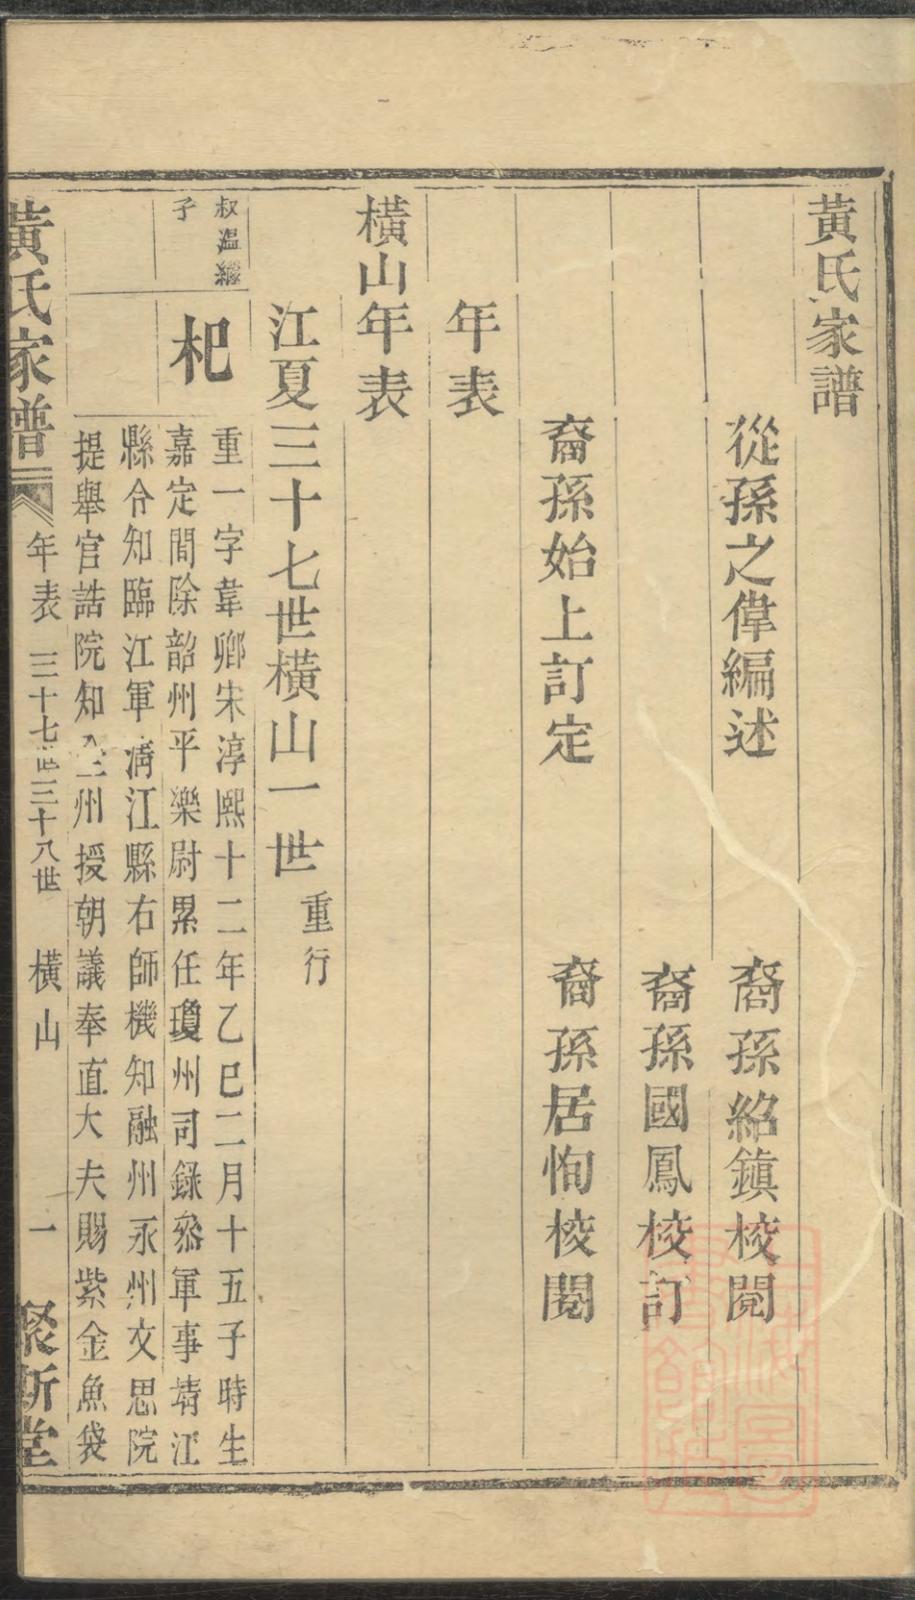 黃氏家譜
從孫之偉編述
裔孫紹鎮校閱
裔孫國鳳校訂
裔孫始上訂定
裔孫居恂校閱
年表
橫山年表
江夏三十七世橫山一世重行
叔溫繼子
杞
重一字韋卿宋淳熙十二年乙巳二月十五子時生
嘉定間除韶州平樂尉累任瓊州司錄叅軍事靖江
縣令知臨江軍淸江縣右師機知融州永州文思院
提舉官誥院知 州授朝議奉直大夫賜紫金魚袋
黃氏家譜
年表
三十七世三十八世
橫山
一
聚斯堂